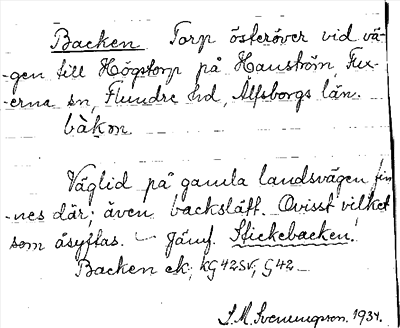 Backen Torp österöver vid vä-
-gen till Högstorp på Hanström, Fux-
-erna sn, Flundre hd, Älfsborgs län.
bàkɒn
Väglid på gamla landsvägen fin
-nes där; även backslätt. Ovisst vilket
som åsyftas. – Jämf. Stickebacken!
Backen ek, kG42SV, G42
S.M. Svenungson. 1934.